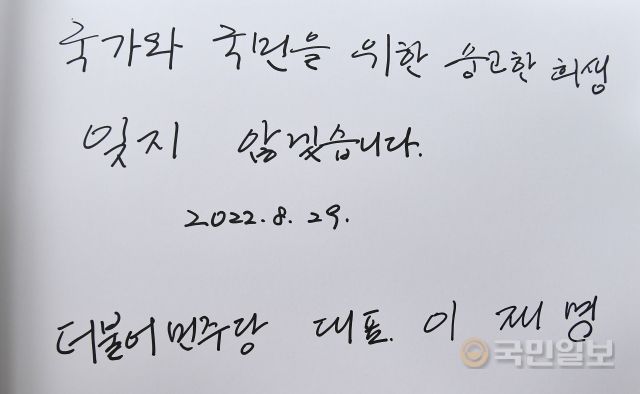 국가와 국민을 위한 숭고한 희생
잊지 않겠습니다.
2022. 8. 29.
더불어민주당 대표. 이 재 명
국민일보